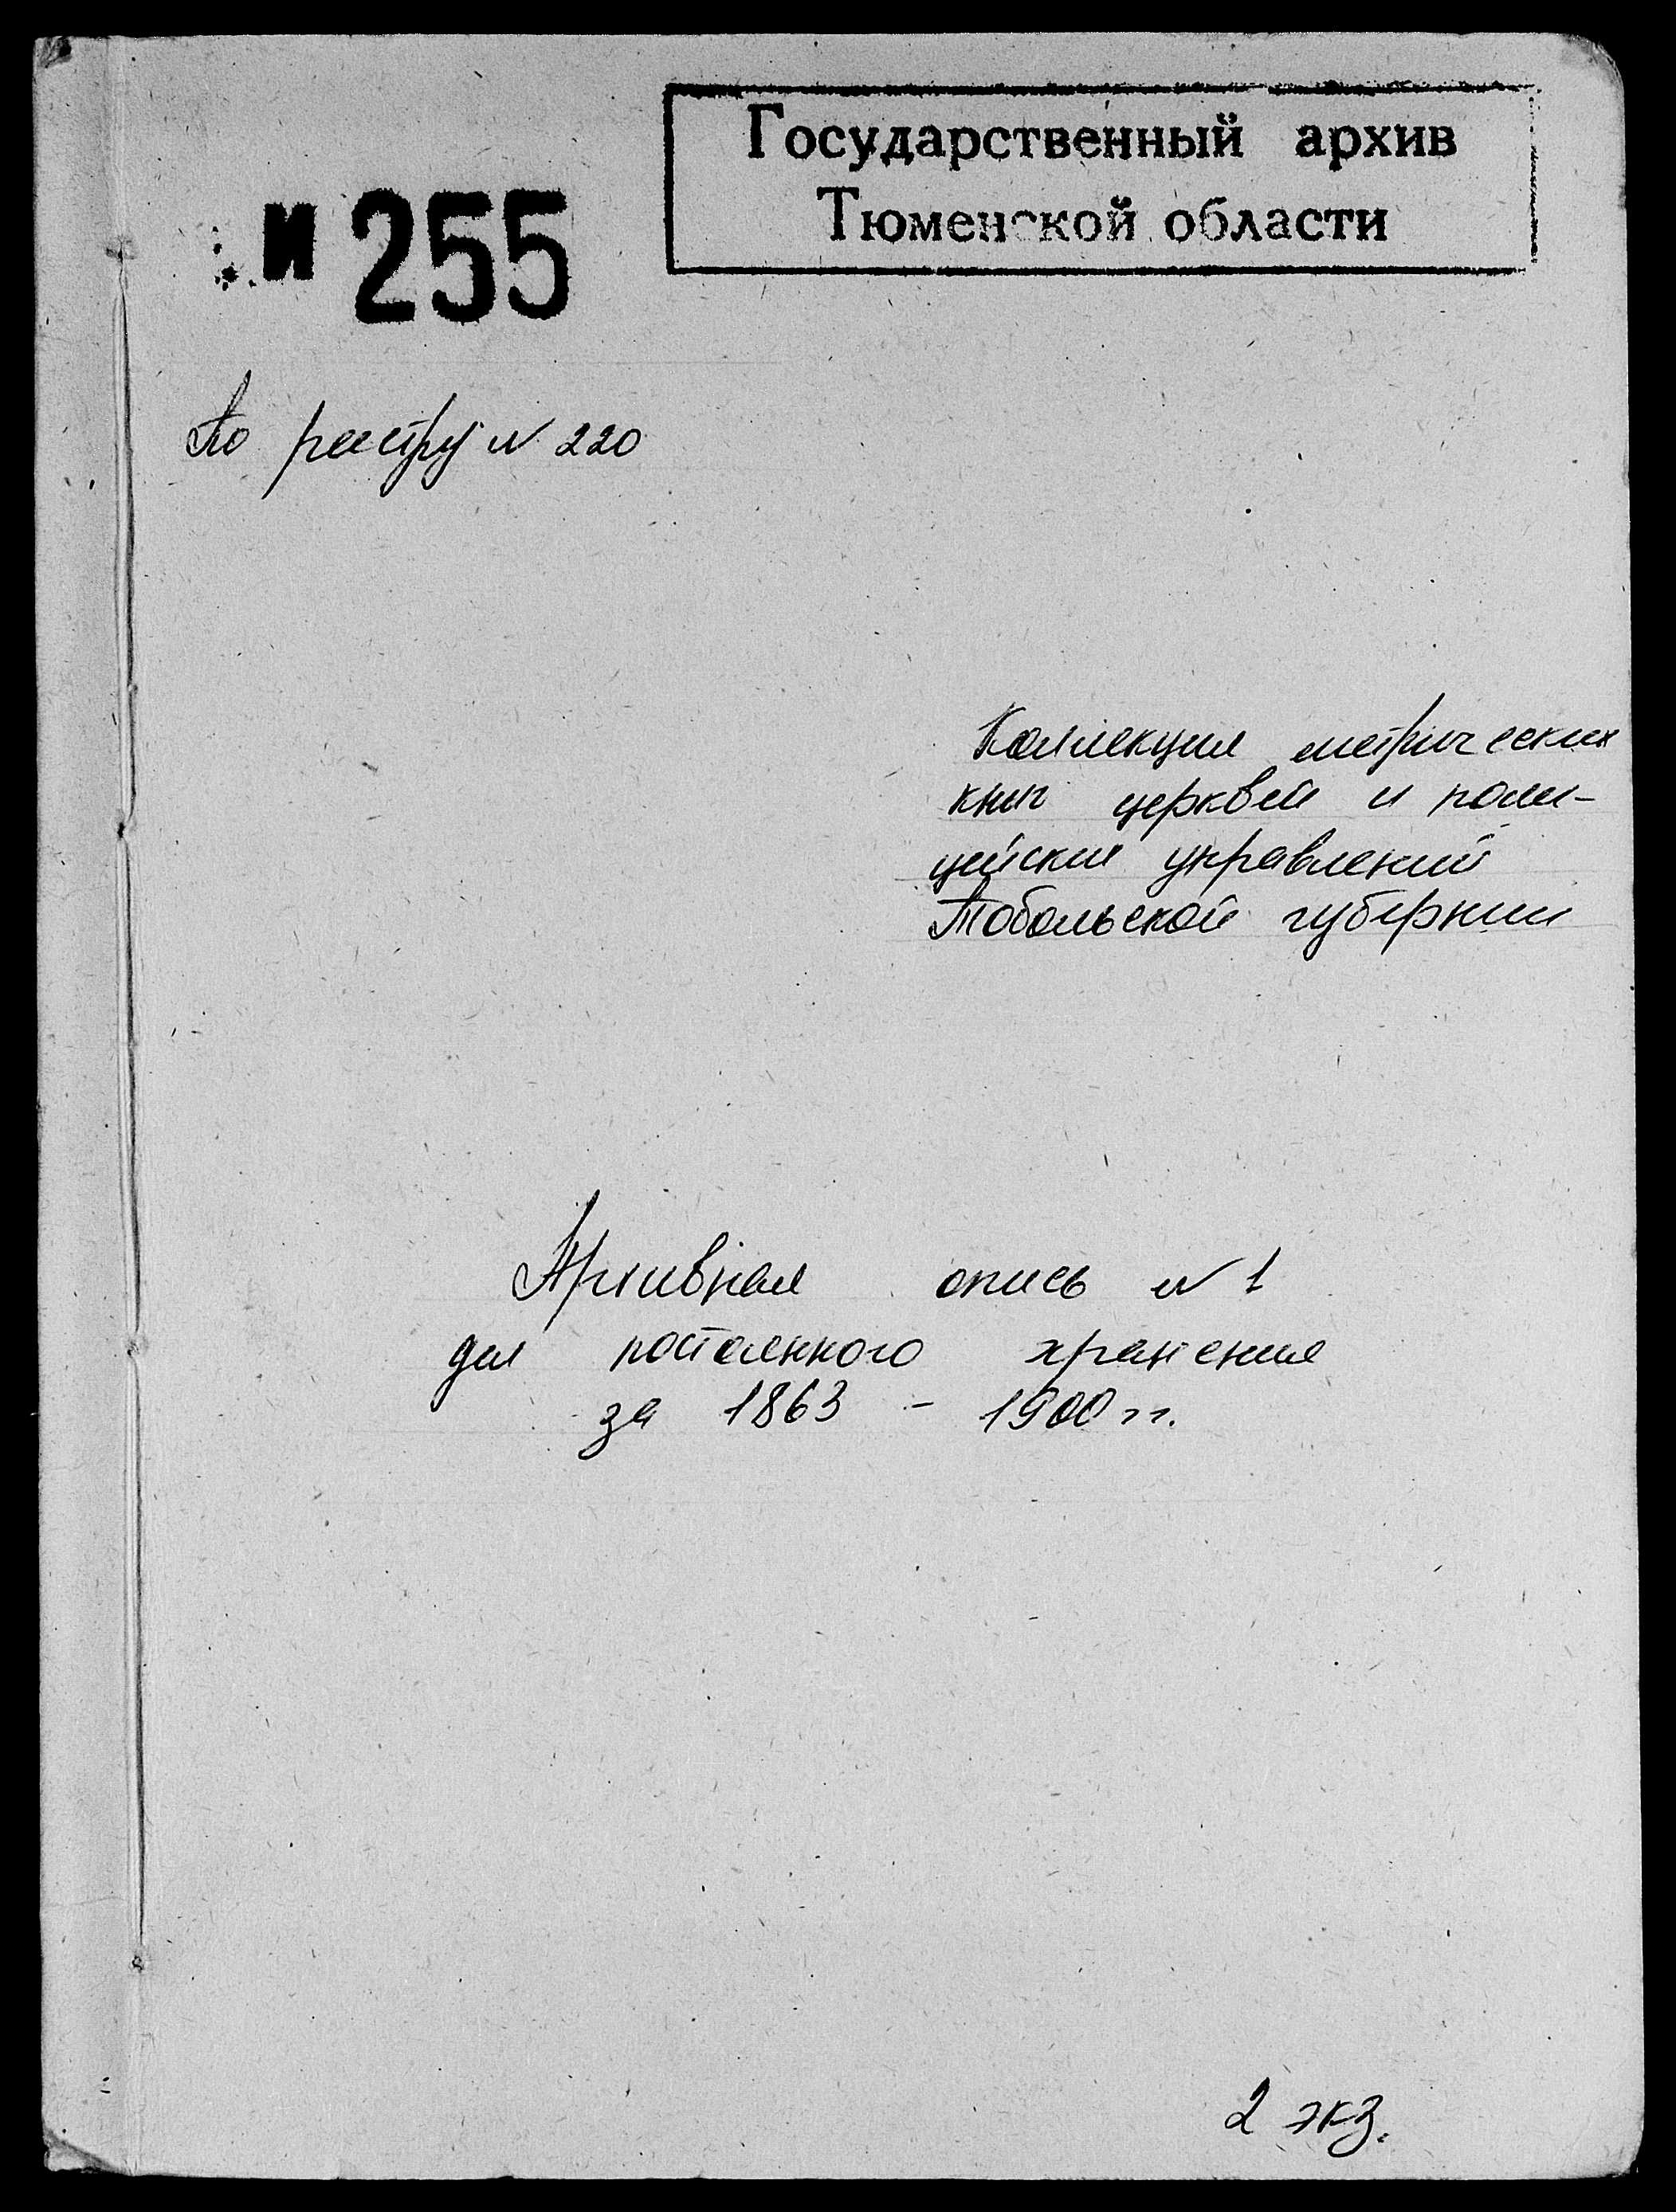 Государственный архив
Тюменской области
И 255
По реестру № 220
Коллекция метрических
книг церквей и поли-
цейских управлений
Тобольской губернии
Архивная опись № 1
дел постоянного хранения
за 1863 - 1900 гг.
2 экз.